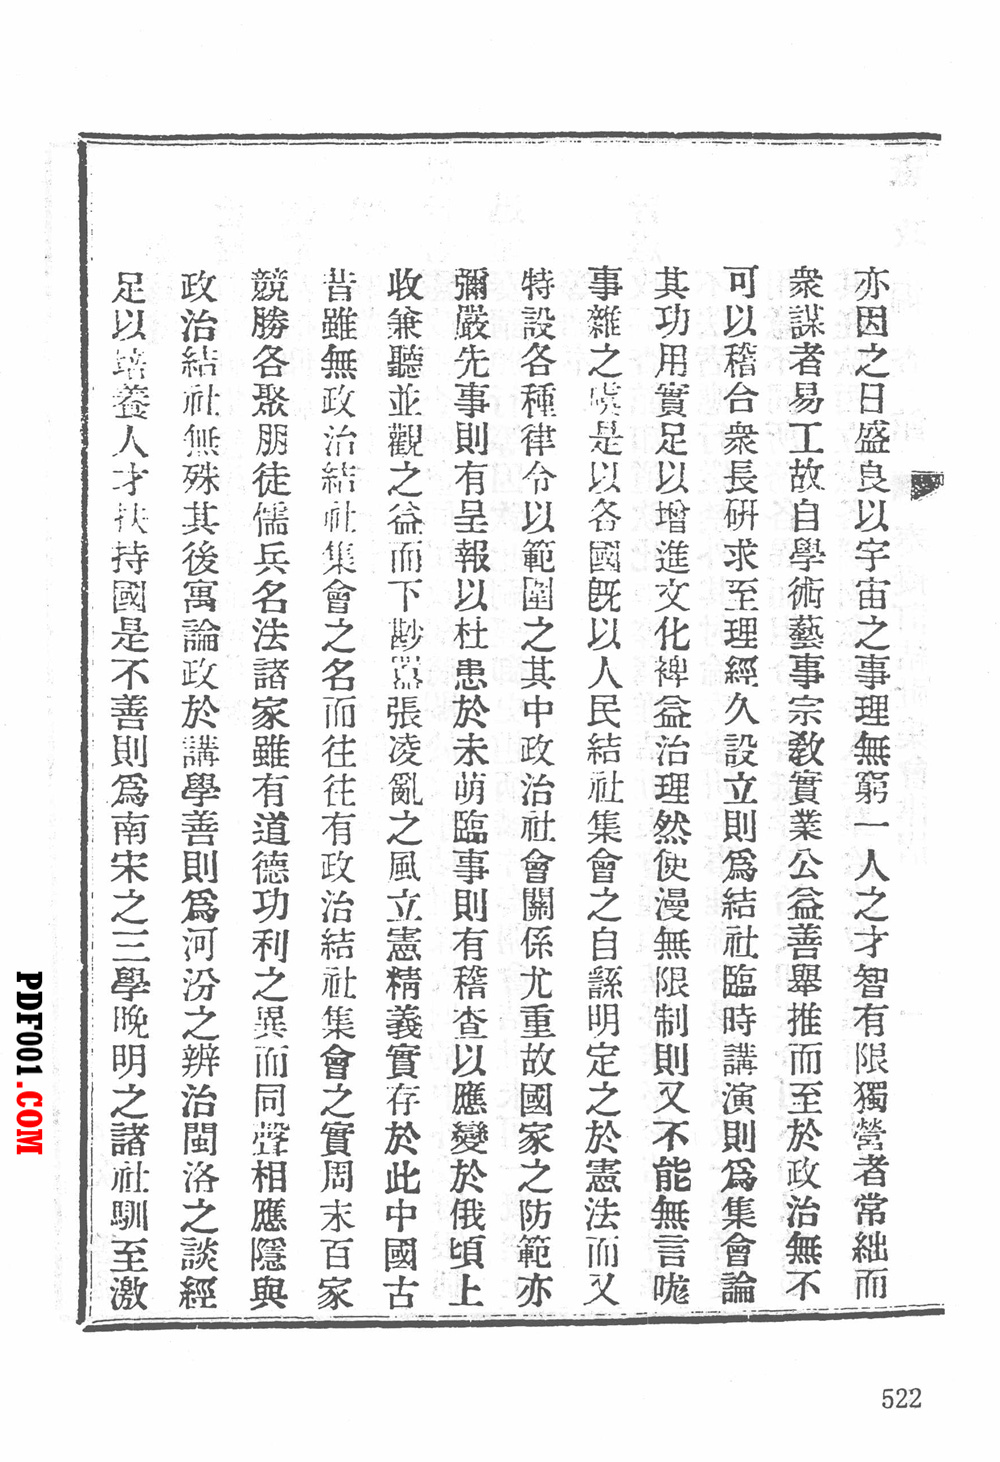 亦因之日盛良以宇宙之事理無窮一人之才智有限獨營者常絀而
衆謀者易工故自學術藝事宗教實業公益善舉推而至於政治無不
可以稽合衆長研求至理經久設立則爲結社臨時講演則爲集會論
其功用實足以增進文化裨益治理然使漫無限制則又不能無言哤
事雜之虞是以各國旣以人民結社集會之自繇明定之於憲法而又
特設各種律令以範圍之其中政治社會關係尤重故國家之防範亦
彌嚴先事則有呈報以杜患於未萌臨事則有稽查以應變於俄頃上
收兼聽並觀之益而下尠囂張凌亂之風立憲精義實存於此中國古
昔雖無政治結社集會之名而往往有政治結社集會之實周末百家
競勝各聚朋徒儒兵名法諸家雖有道德功利之異而同聲相應隱與
政治結社無殊其後寓論政於講學善則爲河汾之辨治閩洛之談經
足以培養人才扶持國是不善則爲南宋之三學晚明之諸社馴至激
522
PDF001.COM